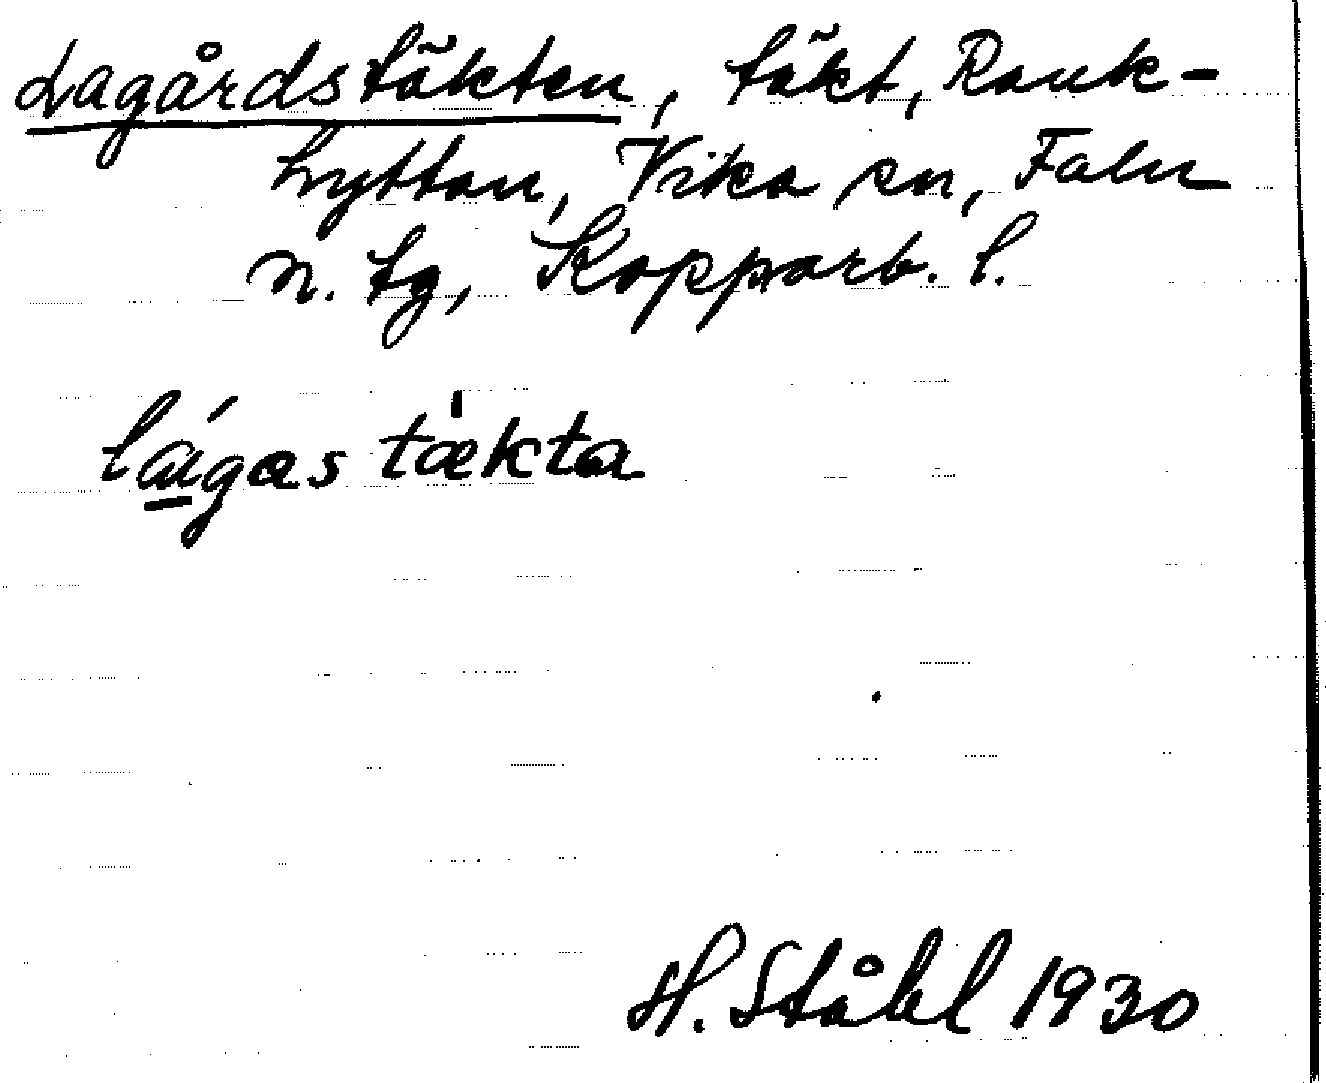 Lagårdstäkten, täkt, Rank-
hyttan, Vika sn, Falu
n. tg, Kopparb. l.
lágæs tækta
H. Ståhl 1930